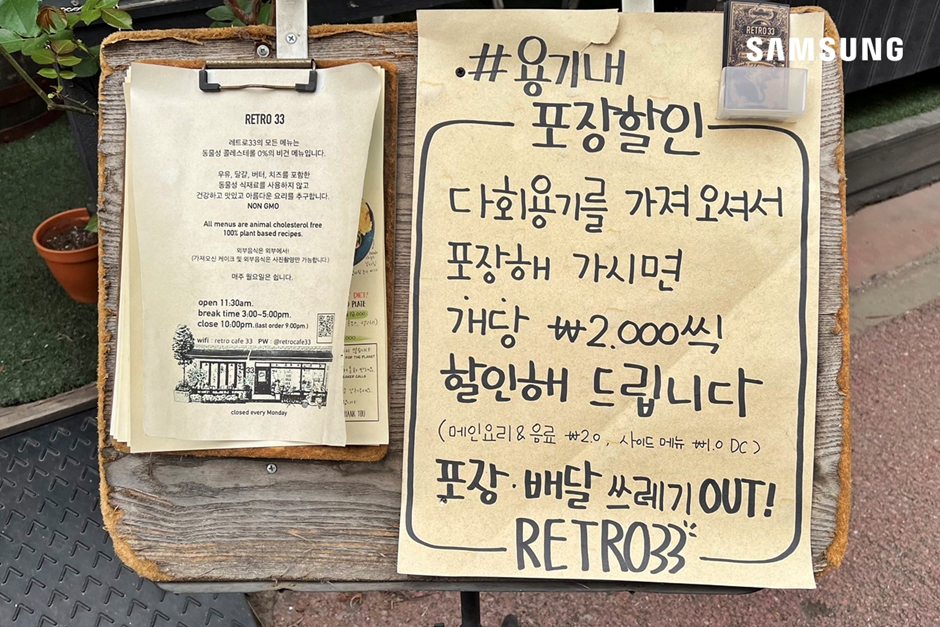 RETRO 33
레트로33의 모든 메뉴는
동물성 콜레스테롤 0%의 비건 메뉴입니다.
우유, 달걀, 버터, 치즈를 포함한
동물성 식재료를 사용하지 않고
건강하고 맛있고 아름다운 요리를 추구합니다.
NON GMO
All menus are animal cholesterol free
100% plant based recipes.
외부음식은 외부에서!
(가져오신 케이크 및 외부음식은 사진촬영만 가능합니다.)
매주 월요일은 쉽니다.
open 11:30am.
break time 3:00~5:00pm.
close 10:00pm. (last order 9:00pm.)
wifi : retro cafe 33 PW : @retrocafe33
closed every Monday
#용기내
포장할인
다회용기를 가져오셔서
포장해 가시면
개당 ₩2.000씩
할인해 드립니다
(메인요리&음료 ₩2.0, 사이드 메뉴 ₩1.0 DC)
포장·배달 쓰레기 OUT!
RETRO33
RETRO 33
SAMSUNG